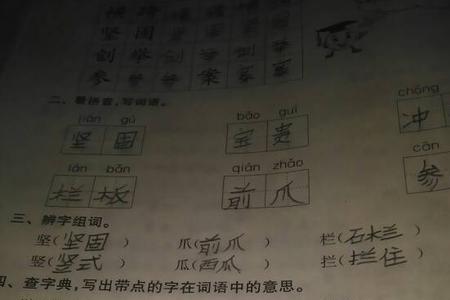 坚 固
创 举 创 举 创 举
参 案 案 案
二、看拼音,写词语。
jiān gù bǎo guì chōng
坚 固 宝 贵 冲
lán bǎn qián zhǎo cān
栏 板 前 爪 参
三、辨字组词。
坚(坚固) 爪(前爪) 栏(石栏)
竖(竖式) 瓜(西瓜) 拦(拦住)
四、查字典,写出带点的字在词语中的意思。